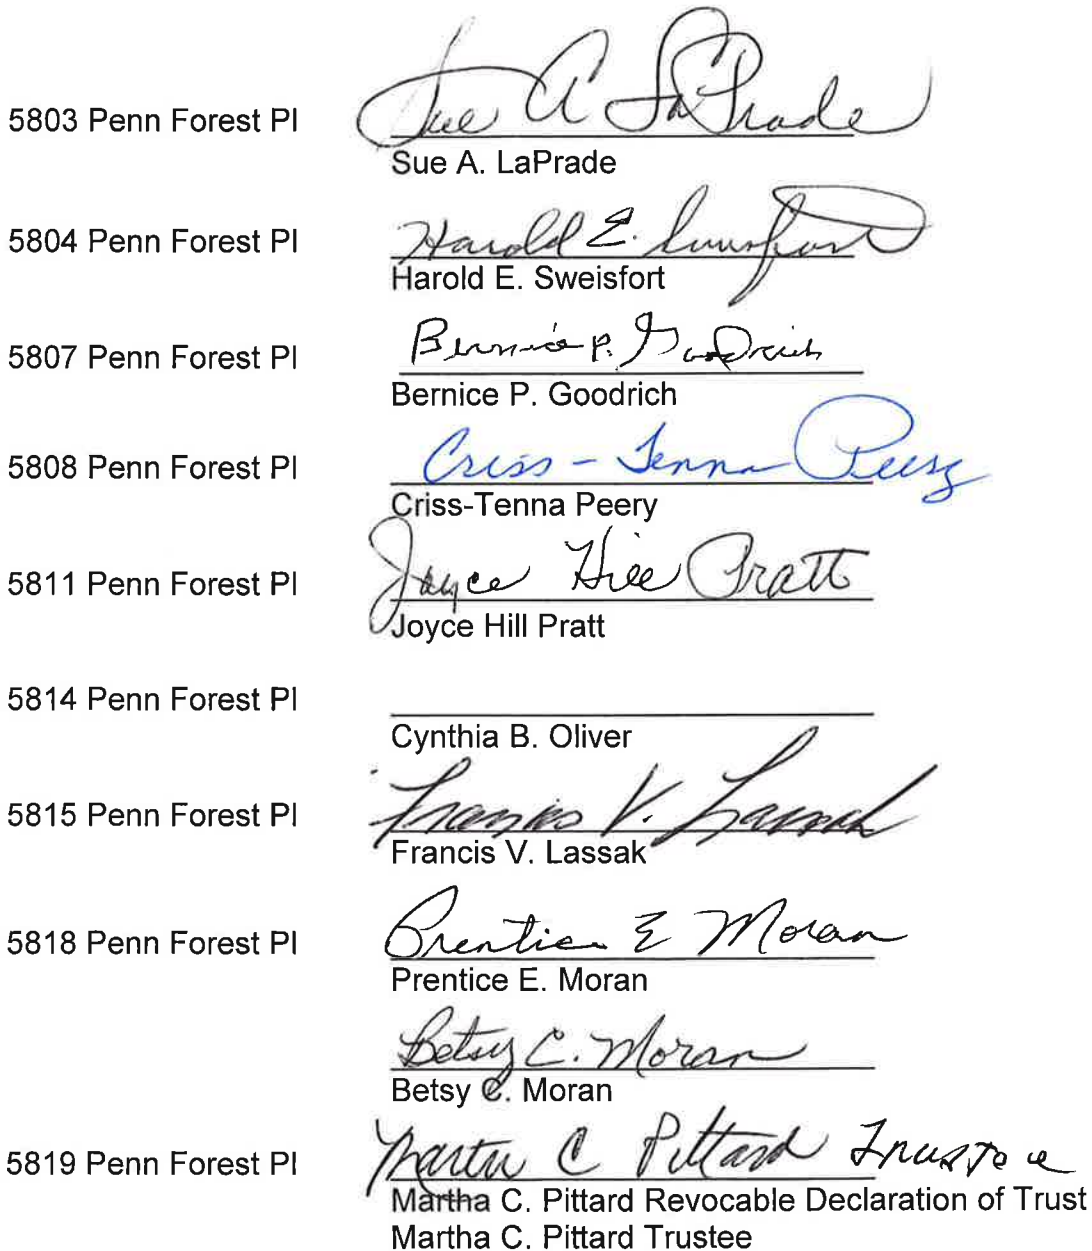 5803 Penn Forest Pl Sue A LaPrade
Sue A. LaPrade
5804 Penn Forest Pl Harold E. Sweisfort
Harold E. Sweisfort
5807 Penn Forest Pl Bernice P. Goodrich
Bernice P. Goodrich
5808 Penn Forest Pl Criss-Tenna Peery
Criss-Tenna Peery
5811 Penn Forest Pl Joyce Hill Pratt
Joyce Hill Pratt
5814 Penn Forest Pl
Cynthia B. Oliver
5815 Penn Forest Pl Francis V. Lassak
Francis V. Lassak
5818 Penn Forest Pl Prentice E Moran
Prentice E. Moran
Betsy C. Moran
Betsy C. Moran
5819 Penn Forest Pl Martha C Pittard Trustee
Martha C. Pittard Revocable Declaration of Trust
Martha C. Pittard Trustee